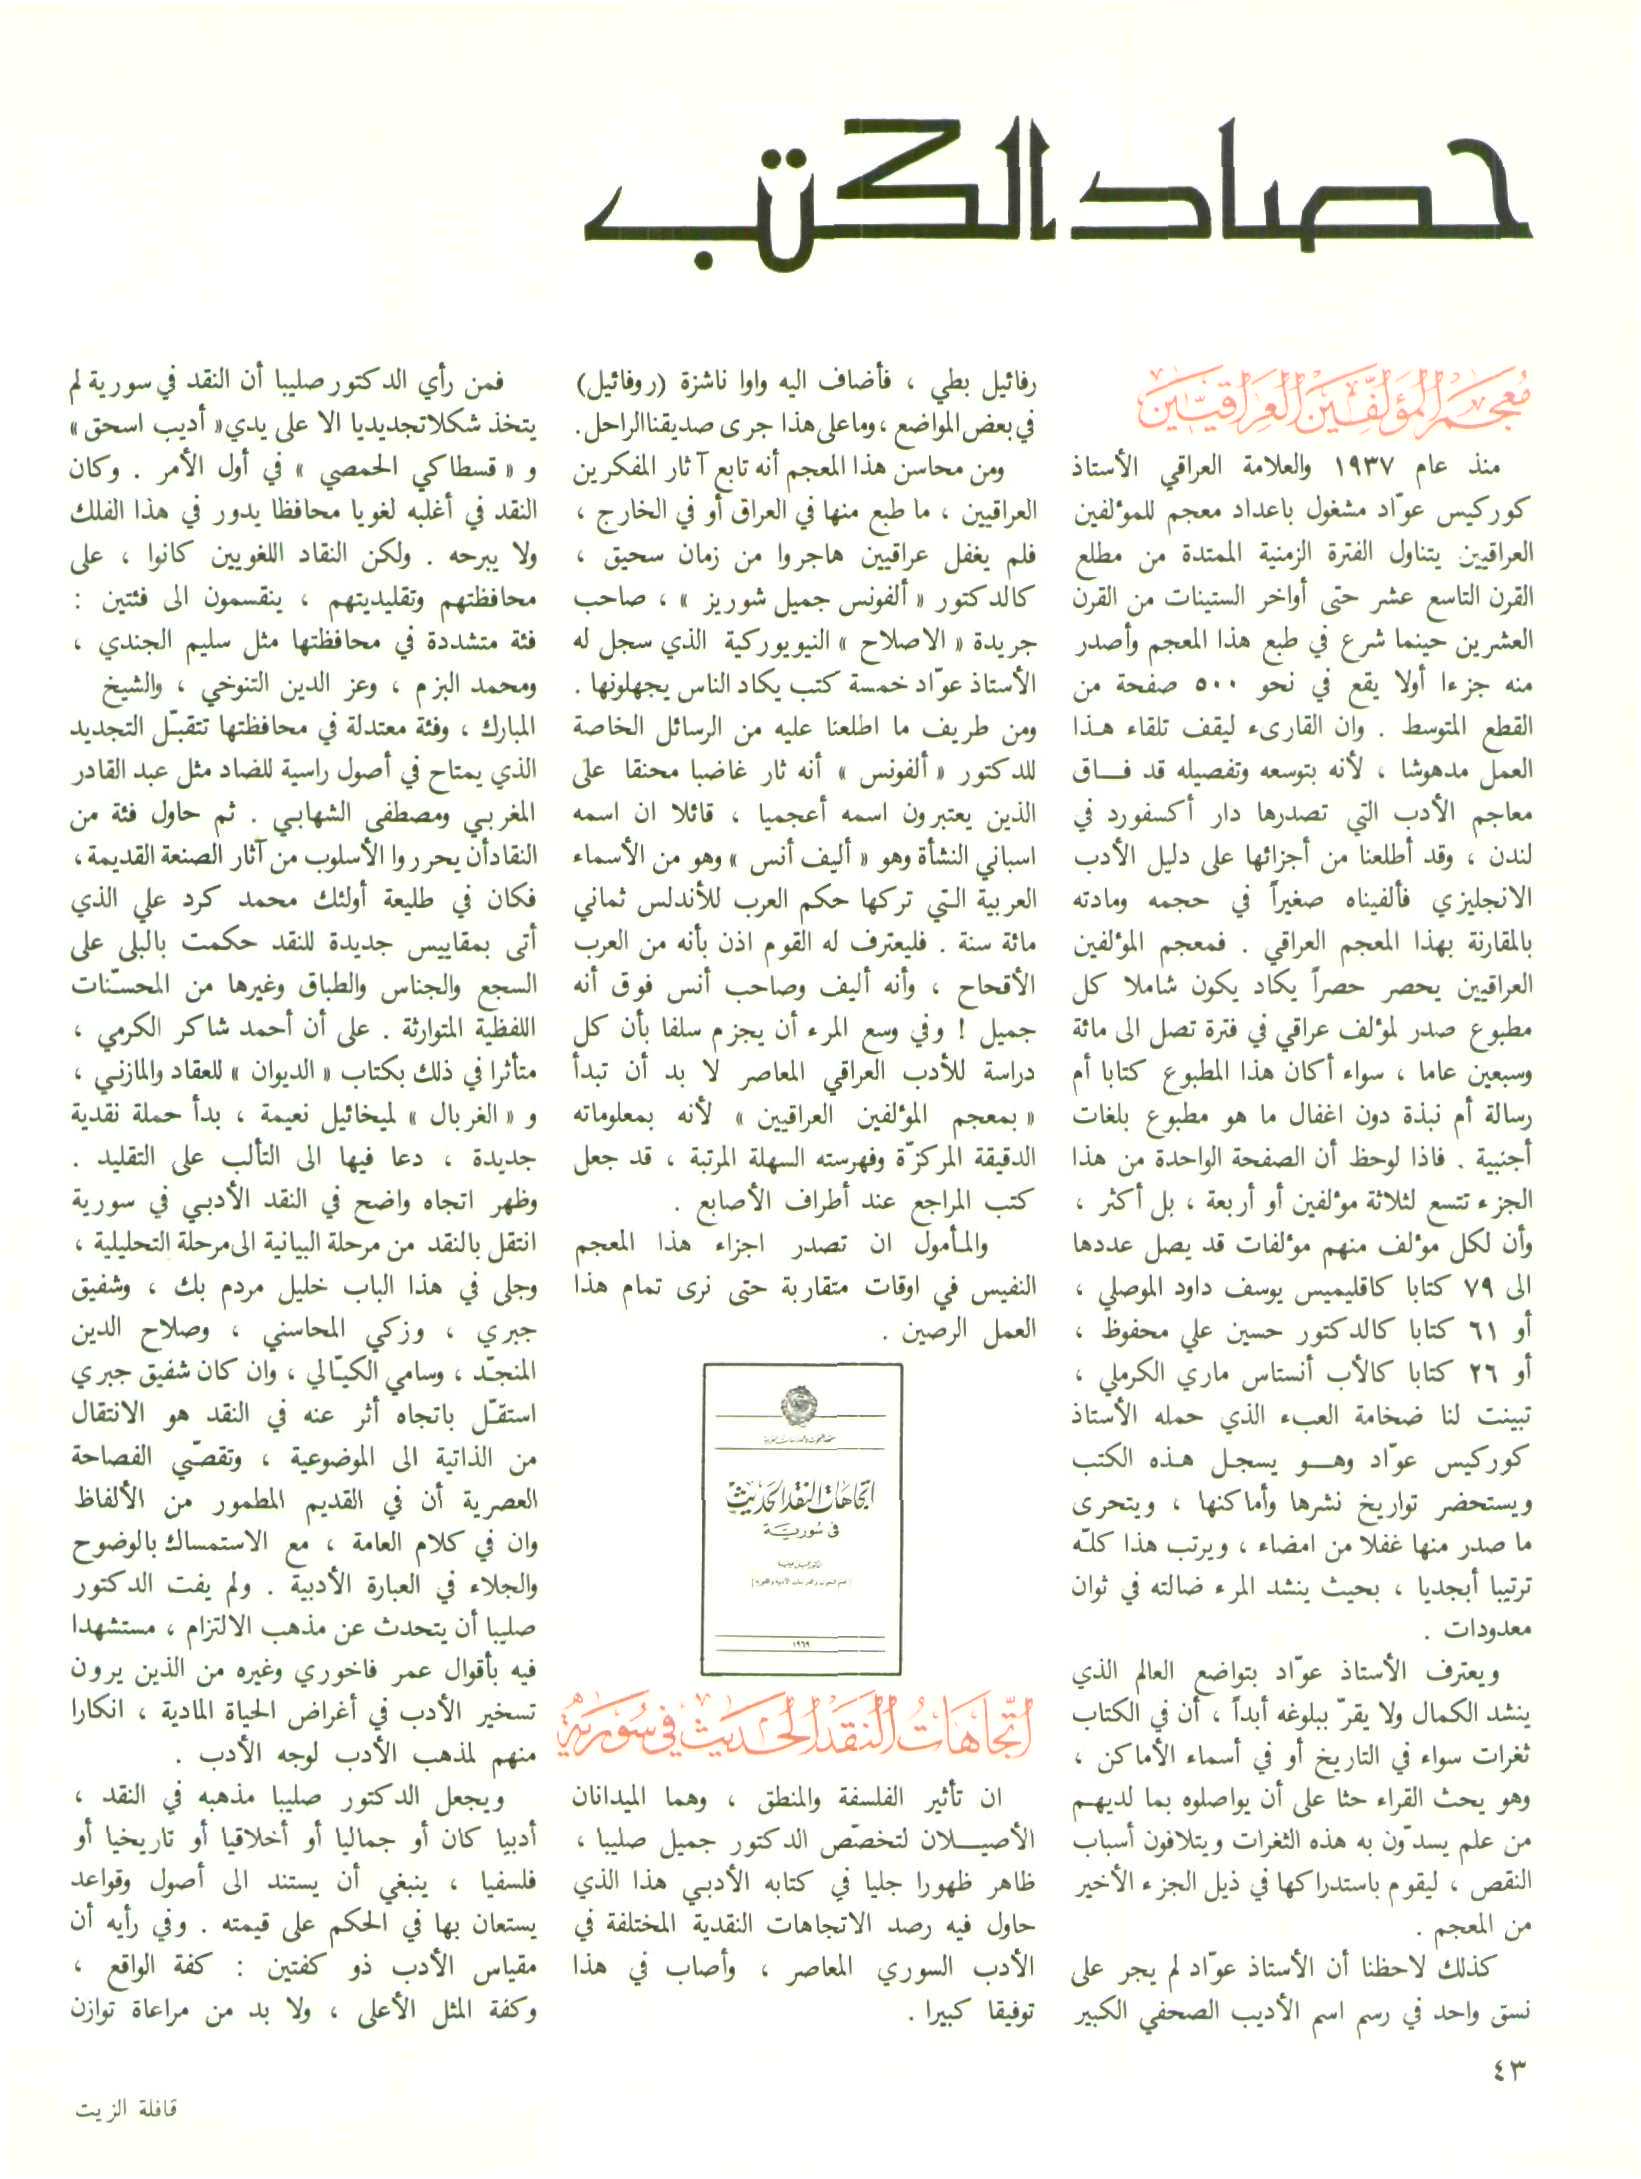 حصاد الكتب
معجم المؤلفين العراقيين
منذ عام ١٩٣٧ والعلامة العراقي الأستاذ
كوركيس عوّاد مشغول باعداد معجم للمؤلفين
العراقيين يتناول الفترة الزمنية الممتدة من مطلع
القرن التاسع عشر حتى أواخر الستينات من القرن
العشرين حينما شرع في طبع هذا المعجم وأصدر
منه جزءا أولا يقع في نحو ٥٠٠ صفحة من
القطع المتوسط . وان القارىء ليقف تلقاء هذا
العمل مدهوشا ، لأنه بتوسعه وتفصيله قد فاق
معاجم الأدب التي تصدرها دار أكسفورد في
لندن ، وقد أطلعنا من أجزائها على دليل الأدب
الانجليزي فألفيناه صغيراً في حجمه ومادته
بالمقارنة بهذا المعجم العراقي . فمعجم المؤلفين
العراقيين يحصر حصراً يكاد يكون شاملا كل
مطبوع صدر لمؤلف عراقي في فترة تصل الى مائة
وسبعين عاما ، سواء أكان هذا المطبوع كتابا أم
رسالة أم نبذة دون اغفال ما هو مطبوع بلغات
أجنبية . فاذا لوحظ أن الصفحة الواحدة من هذا
الجزء تتسع لثلاثة مؤلفين أو أربعة ، بل أكثر ،
وأن لكل مؤلف منهم مؤلفات قد يصل عددها
الى ٧٩ كتابا كاقليميس يوسف داود الموصلي ،
أو ٦١ كتابا كالدكتور حسين علي محفوظ ،
أو ٢٦ كتابا كالأب أنستاس ماري الكرملي ،
تبينت لنا ضخامة العبء الذي حمله الأستاذ
كوركيس عوّاد وهو يسجل هذه الكتب
ويستحضر تواريخ نشرها وأماكنها ، ويتحرى
ما صدر منها غفلا من امضاء ، ويرتب هذا كلّه
ترتيبا أبجديا ، بحيث ينشد المرء ضالته في ثوان
معدودات .
ويعترف الأستاذ عوّاد بتواضع العالم الذي
ينشد الكمال ولا يقرّ ببلوغه أبداً ، أن في الكتاب
ثغرات سواء في التاريخ أو في أسماء الأماكن ،
وهو يحث القراء حثا على أن يواصلوه بما لديهم
من علم يسدّون به هذه الثغرات ويتلافون أسباب
النقص ، ليقوم باستدراكها في ذيل الجزء الأخير
من المعجم .
كذلك لاحظنا أن الأستاذ عوّاد لم يجر على
نسق واحد في رسم اسم الأديب الصحفي الكبير
رفائيل بطي ، فأضاف اليه واوا ناشزة (روفائيل)
في بعض المواضع ، وما على هذا جرى صديقنا الراحل .
ومن محاسن هذا المعجم أنه تابع آثار المفكرين
العراقيين ، ما طبع منها في العراق أو في الخارج ،
فلم يغفل عراقيين هاجروا من زمان سحيق ،
كالدكتور « ألفونس جميل شوريز » ، صاحب
جريدة « الاصلاح » النيويوركية الذي سجل له
الأستاذ عوّاد خمسة كتب يكاد الناس يجهلونها .
ومن طريف ما اطلعنا عليه من الرسائل الخاصة
للدكتور « ألفونس » أنه ثار غاضبا محنقا على
الذين يعتبرون اسمه أعجميا ، قائلا ان اسمه
اسباني النشأة وهو « أليف أنس » وهو من الأسماء
العربية التي تركها حكم العرب للأندلس ثماني
مائة سنة . فليعترف له القوم اذن بأنه من العرب
الأقحاح ، وأنه أليف وصاحب أنس فوق أنه
جميل ! وفي وسع المرء أن يجزم سلفا بأن كل
دراسة للأدب العراقي المعاصر لا بد أن تبدأ
« بمعجم المؤلفين العراقيين » لأنه بمعلوماته
الدقيقة المركزّة وفهرسته السهلة المرتبة ، قد جعل
كتب المراجع عند أطراف الأصابع .
والمأمول ان تصدر اجزاء هذا المعجم
النفيس في اوقات متقاربة حتى نرى تمام هذا
العمل الرصين .
اتجاهات النقد الحديث
في سورية
١٩٦٩
اتجاهات النقد الحديث في سورية
ان تأثير الفلسفة والمنطق ، وهما الميدانان
الأصيلان لتخصّص الدكتور جميل صليبا ،
ظاهر ظهورا جليا في كتابه الأدبي هذا الذي
حاول فيه رصد الاتجاهات النقدية المختلفة في
الأدب السوري المعاصر ، وأصاب في هذا
توفيقا كبيرا .
فمن رأي الدكتور صليبا أن النقد في سورية لم
يتخذ شكلا تجديديا الا على يدي « أديب اسحق »
و « قسطاكي الحمصي » في أول الأمر . وكان
النقد في أغلبه لغويا محافظا يدور في هذا الفلك
ولا يبرحه . ولكن النقاد اللغويين كانوا ، على
محافظتهم وتقليديتهم ، ينقسمون الى فئتين :
فئة متشددة في محافظتها مثل سليم الجندي ،
ومحمد البزم ، وعز الدين التنوخي ، والشيخ
المبارك ، وفئة معتدلة في محافظتها تتقبّل التجديد
الذي يمتاح في أصول راسية للضاد مثل عبد القادر
المغربي ومصطفى الشهابي . ثم حاول فئة من
النقاد أن يحرروا الأسلوب من آثار الصنعة القديمة ،
فكان في طليعة أولئك محمد كرد علي الذي
أتى بمقاييس جديدة للنقد حكمت بالبلى على
السجع والجناس والطباق وغيرها من المحسّنات
اللفظية المتوارثة . على أن أحمد شاكر الكرمي ،
متأثرا في ذلك بكتاب « الديوان » للعقاد والمازني ،
و « الغربال » لميخائيل نعيمة ، بدأ حملة نقدية
جديدة ، دعا فيها الى التألب على التقليد .
وظهر اتجاه واضح في النقد الأدبي في سورية
انتقل بالنقد من مرحلة البيانية الى مرحلة التحليلية ،
وجلى في هذا الباب خليل مردم بك ، وشفيق
جبري ، وزكي المحاسني ، وصلاح الدين
المنجّد ، وسامي الكيّالي ، وان كان شفيق جبري
استقلّ باتجاه أثر عنه في النقد هو الانتقال
من الذاتية الى الموضوعية ، وتقصّي الفصاحة
العصرية أن في القديم المطمور من الألفاظ
وان في كلام العامة ، مع الاستمساك بالوضوح
والجلاء في العبارة الأدبية . ولم يفت الدكتور
صليبا أن يتحدث عن مذهب الالتزام ، مستشهدا
فيه بأقوال عمر فاخوري وغيره من الذين يرون
تسخير الأدب في أغراض الحياة المادية ، انكارا
منهم لمذهب الأدب لوجه الأدب .
ويجعل الدكتور صليبا مذهبه في النقد ،
أدبيا كان أو جماليا أو أخلاقيا أو تاريخيا أو
فلسفيا ، ينبغي أن يستند الى أصول وقواعد
يستعان بها في الحكم على قيمته . وفي رأيه أن
مقياس الأدب ذو كفتين : كفة الواقع ،
وكفة المثل الأعلى ، ولا بد من مراعاة توازن
٤٣
قافلة الزيت